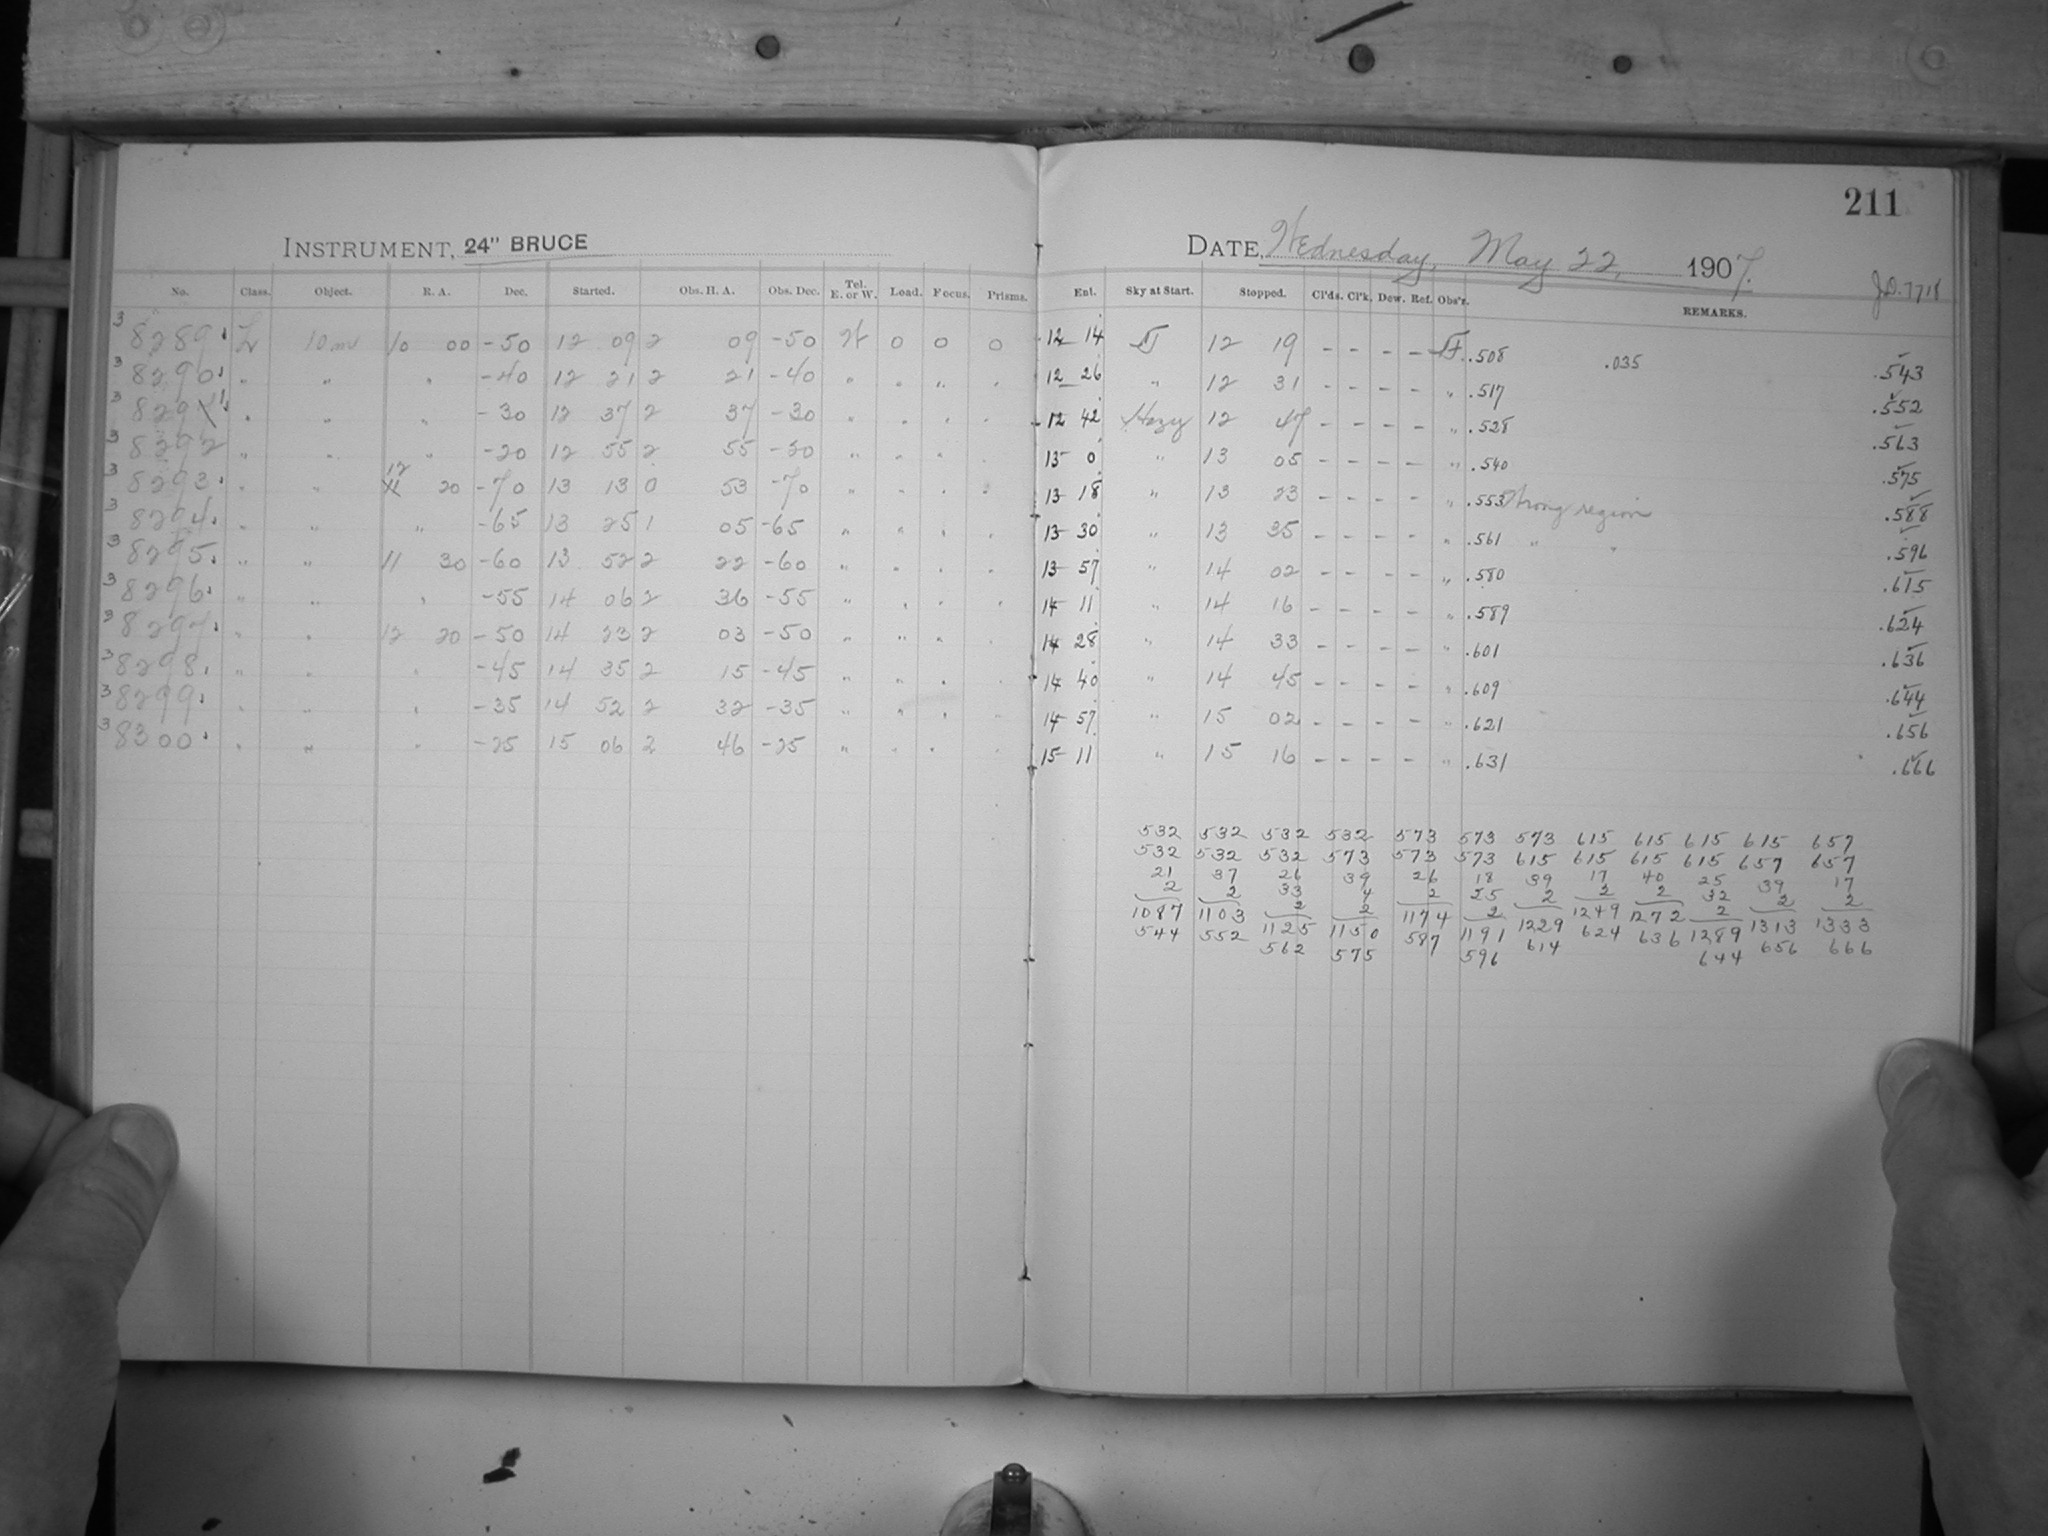 211
INSTRUMENT, 24" BRUCE DATE, Wednesday, May 22, 1907. J.D. 7718
No. Class. Object. R. A. Dec. Started. Obs. H. A. Obs. Dec. Tel. E. or W. Load. Focus. Prisms. Ent. Sky at Start. Stopped. Cl'ds. Cl'k. Dew. Ref. Obs'r. REMARKS.
3 8289 L 10 m 10 00 -50 12 09 2 09 -50 W 0 0 0 12 14 12 19 - - - - .508 .035 .543
3 8290 " " " -40 12 21 2 21 -40 " " " " 12 26 " 12 31 - - - - " .517 .552
3 8291 " " " -30 12 37 2 37 -30 " " " " 12 42 Hazy 12 47 - - - - " .528 .563
3 8292 " " " -20 12 55 2 55 -20 " " " " 13 0 " 13 05 - - - - " .540 .575
3 8293 " " 12 20 -70 13 13 0 53 -70 " " " " 13 18 " 13 23 - - - - " .553 Wrong region .588
3 8294 " " " -65 13 25 1 05 -65 " " " " 13 30 " 13 35 - - - - " .561 " " .596
3 8295 " " 11 30 -60 13 52 2 22 -60 " " " " 13 57 " 14 02 - - - - " .580 .615
3 8296 " " " -55 14 06 2 36 -55 " " " " 14 11 " 14 16 - - - - " .589 .624
3 8297 " " 12 20 -50 14 23 2 03 -50 " " " " 14 28 " 14 33 - - - - " .601 .636
3 8298 " " " -45 14 35 2 15 -45 " " " " 14 40 " 14 45 - - - - " .609 .644
3 8299 " " " -35 14 52 2 32 -35 " " " " 14 57 " 15 02 - - - - " .621 .656
3 8300 " " " -25 15 06 2 46 -25 " " " " 15 11 " 15 16 - - - - " .631 .666
532 532 532 532 573 573 573 615 615 615 615 657
532 532 532 573 573 573 615 615 615 615 657 657
21 37 26 39 26 18 39 17 40 25 39 17
2 2 33 4 2 25 2 2 2 32 2 2
1087 1103 2 2 1174 2 1229 1249 1272 2 1313 1333
544 552 1125 1150 587 1191 614 624 636 1289 656 666
562 575 596 644